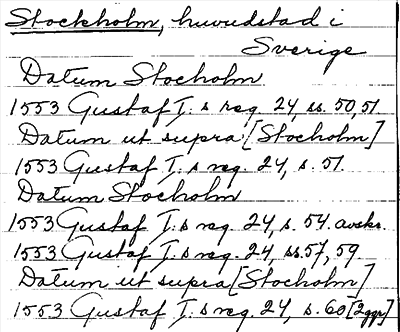 Stockholm, huvudstad i
Sverige
Datum Stocholm
1553 Gustaf I:s reg. 24, ss. 50, 51.
Datum ut supra [Stocholm]
1553 Gustaf I:s reg. 24, s. 51.
Datum Stocholm
1553 Gustaf I:s reg. 24, s. 54. avskr.
1553 Gustaf I:s reg. 24, ss. 57, 59.
Datum ut supra [Stocholm]
1553 Gustaf I:s reg. 24, s. 60 [2ggr]